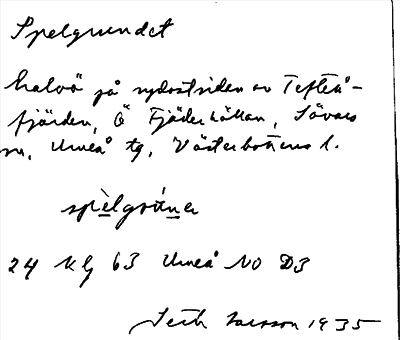 Spelgrundet
halvö på sydostsidan av Tefteå-
fjärden, Ö Fjäderhällan, Sävars
sn, Umeå tg, Västerbottens l.
spèlgrúne
24 Kg 63 Umeå NO D3
Larsson 1935